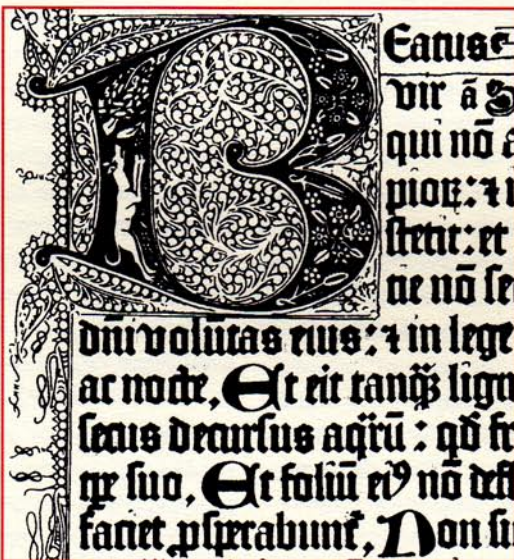 BEatus e
vir ā S
qui nō a
pioꝝ: ⁊ i
stetit: et
tie nō se
dn̄i volūtas eius: ⁊ in lege
ac nocte, Et erit tanq̄ꝫ lign
secus decursus aqr̄ū : qd̄ fr
pe suo, Et foliū eiꝰ nō defl
faciet ꝓsperabunt᷑, Non si